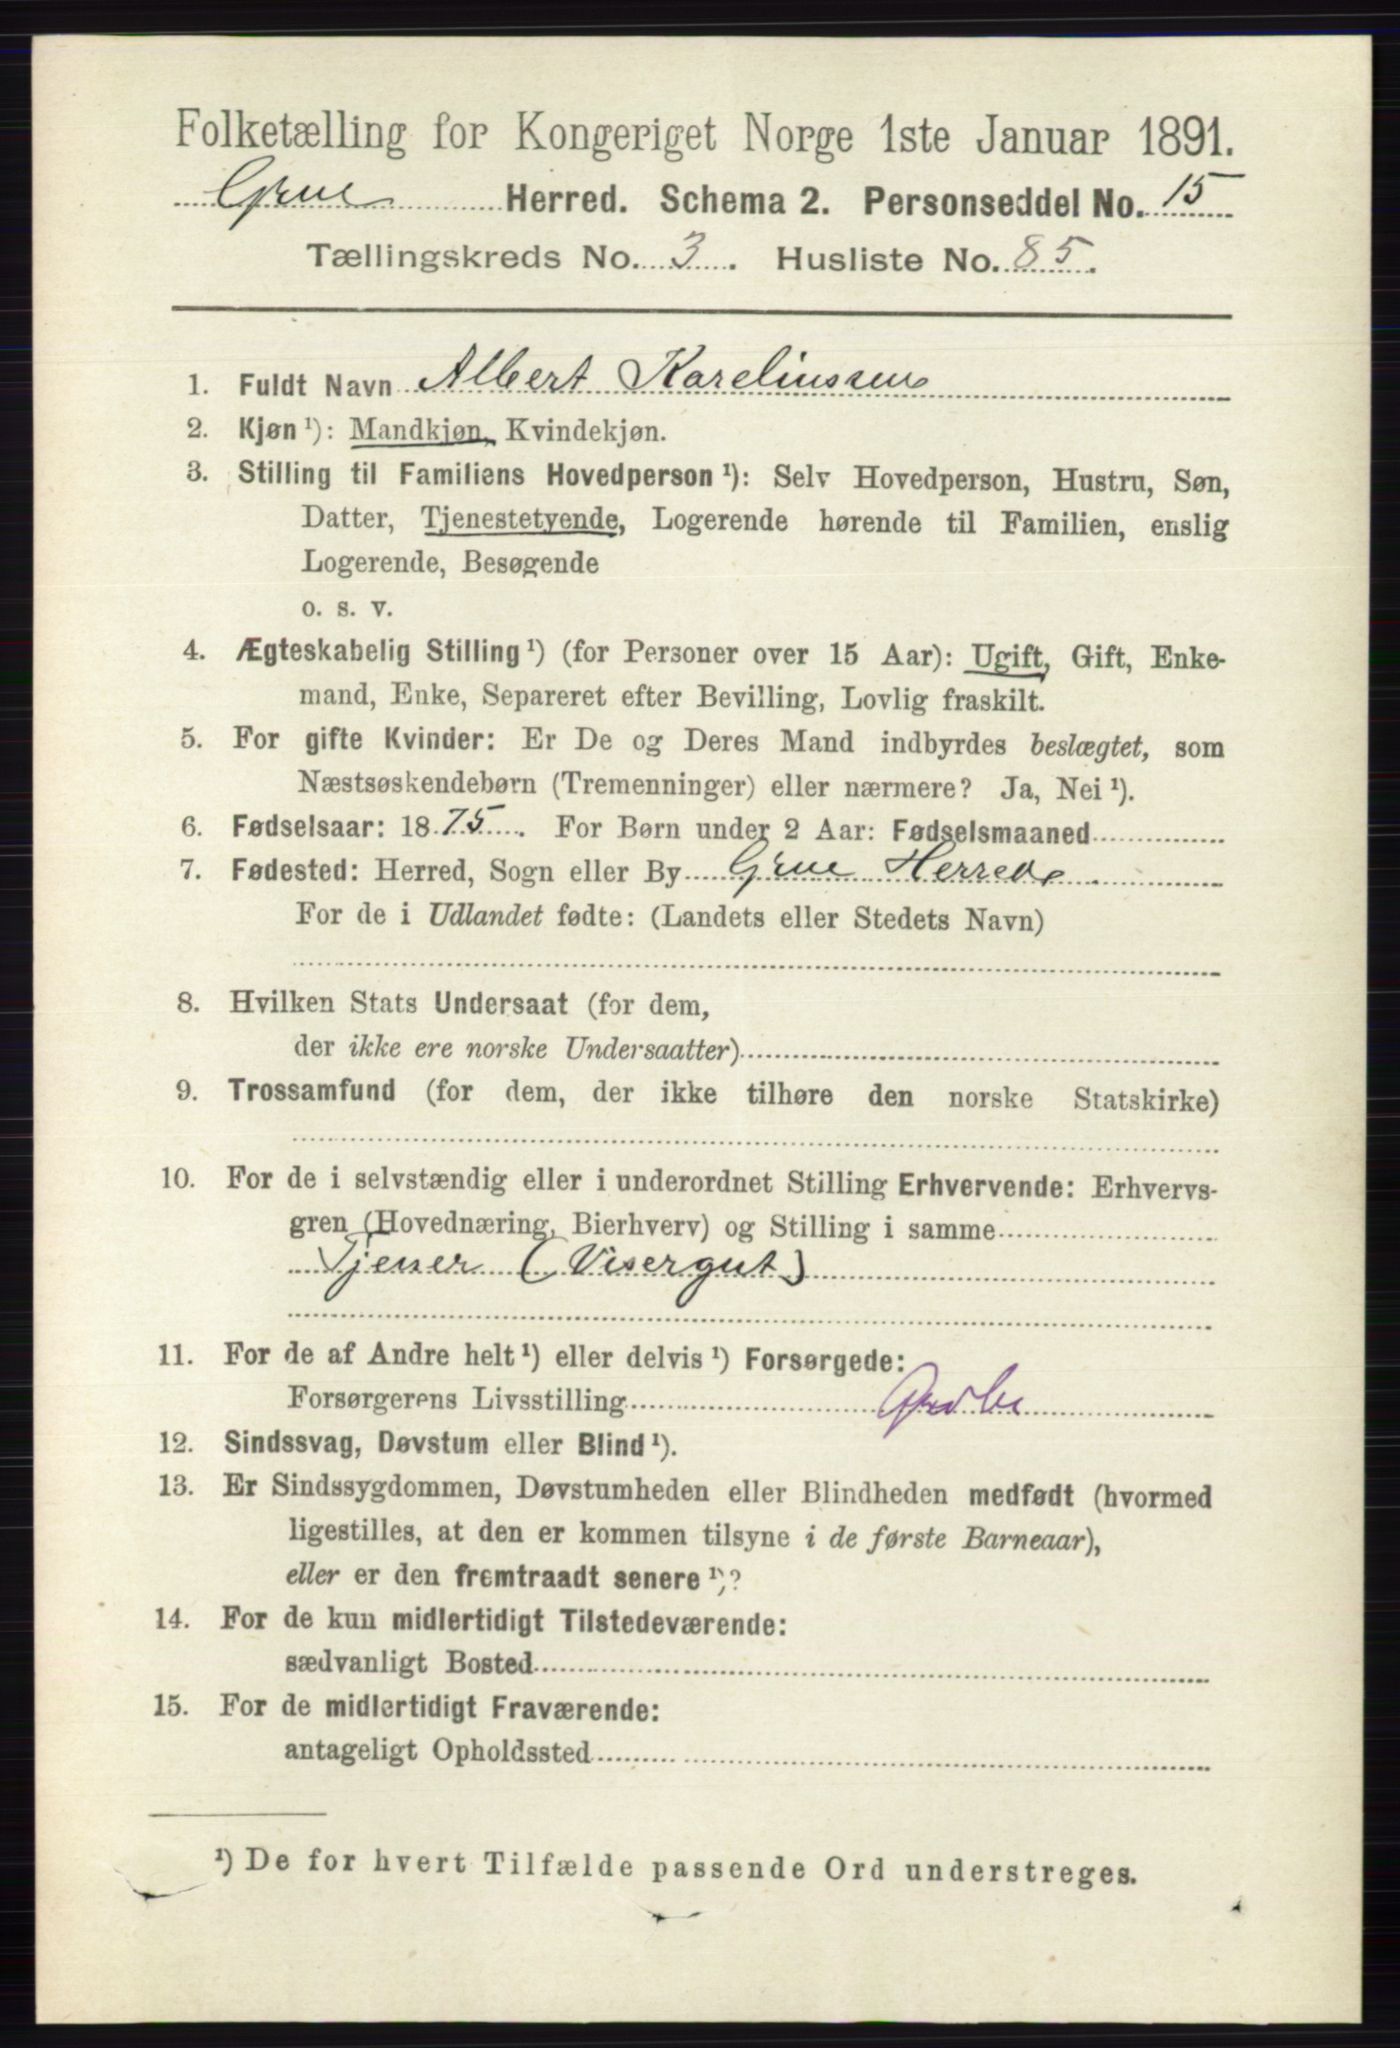 Folketælling for Kongeriget Norge 1ste Januar 1891.
Grue Herred. Schema 2. Personseddel No. 15
Tællingskreds No. 3. Husliste No. 85.
1. Fuldt Navn Albert Karelinssen
2. Kjøn ¹): Mandkjøn, Kvindekjøn.
3. Stilling til Familiens Hovedperson ¹): Selv Hovedperson, Hustru, Søn,
Datter, Tjenestetyende, Logerende hørende til Familien, enslig
Logerende, Besøgende
o. s. v.
4. Ægteskabelig Stilling ¹) (for Personer over 15 Aar): Ugift, Gift, Enke-
mand, Enke, Separeret efter Bevilling, Lovlig fraskilt.
5. For gifte Kvinder: Er De og Deres Mand indbyrdes beslægtet, som
Næstsøskendebørn (Tremenninger) eller nærmere? Ja, Nei ¹).
6. Fødselsaar: 1875. For Børn under 2 Aar: Fødselsmaaned
7. Fødested: Herred, Sogn eller By Grue Herred
For de i Udlandet fødte: (Landets eller Stedets Navn)
8. Hvilken Stats Undersaat (for dem,
der ikke ere norske Undersaatter)
9. Trossamfund (for dem, der ikke tilhøre den norske Statskirke)
10. For de i selvstændig eller i underordnet Stilling Erhvervende: Erhvervs-
gren (Hovednæring, Bierhverv) og Stilling i samme
Tjener (Visergut)
11. For de af Andre helt ¹) eller delvis ¹) Forsørgede:
Forsørgerens Livsstilling
12. Sindssvag, Døvstum eller Blind ¹).
13. Er Sindssygdommen, Døvstumheden eller Blindheden medfødt (hvormed
ligestilles, at den er kommen tilsyne i de første Barneaar),
eller er den fremtraadt senere ¹)?
14. For de kun midlertidigt Tilstedeværende:
sædvanligt Bosted
15. For de midlertidigt Fraværende:
antageligt Opholdssted
¹) De for hvert Tilfælde passende Ord understreges.